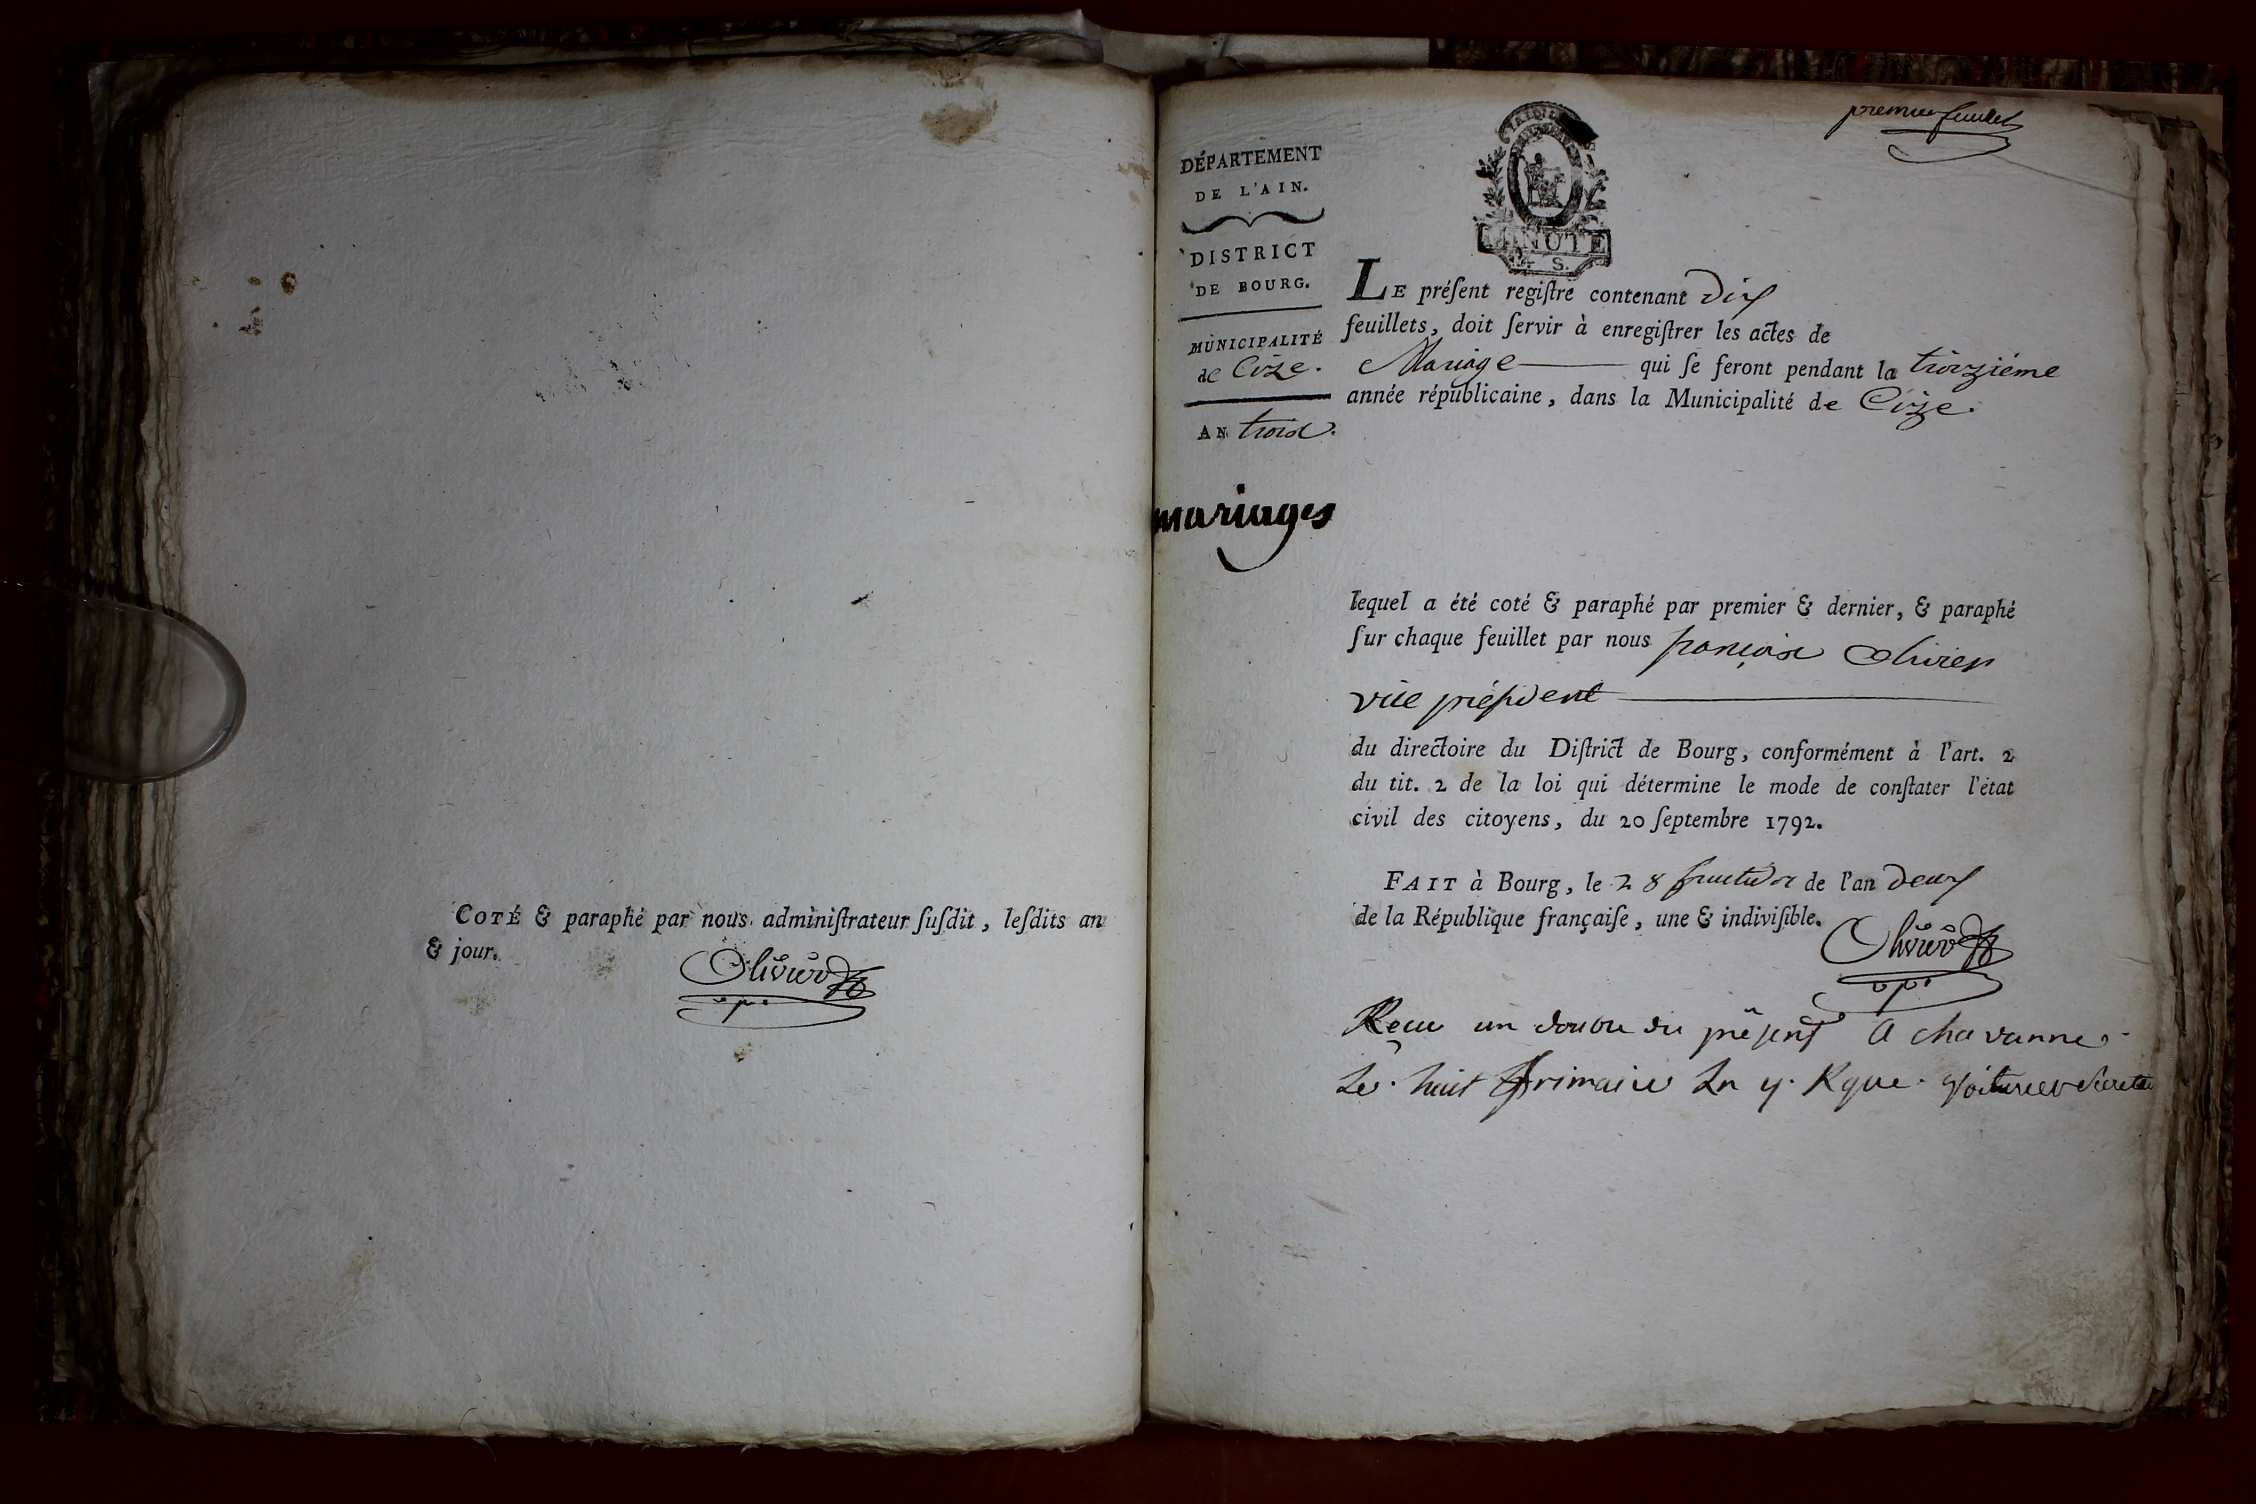 Coté & paraphé par nous administrateur susdit, lesdits an
& jour.
Olivier
v. p.
premier feuillet
DÉPARTEMENT
DE L'AIN.
DISTRICT
DE BOURG.
MUNICIPALITÉ
de Cize.
AN trois.
mariages
MINUTE
S.
LE présent registre contenant Dix
feuillets, doit servir à enregistrer les actes de
Mariage qui se feront pendant la troizième
année républicaine, dans la Municipalité de Cize.
lequel a été coté & paraphé par premier & dernier, & paraphé
sur chaque feuillet par nous françois Olivier
vice président
du directoire du District de Bourg, conformément à l'art. 2
du tit. 2 de la loi qui détermine le mode de constater l'état
civil des citoyens, du 20 septembre 1792.
FAIT à Bourg, le 28 fructidor de l'an deux
de la République française, une & indivisible.
Olivier
v. p.
Reçu un double du présent A chavanne
Le huit frimaire Rque.